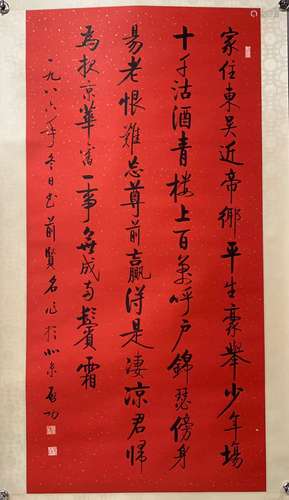 家住東吳近帝鄉平生豪舉少年場
十千沽酒青樓上百萬呼盧錦瑟傍身
易老恨難忘尊前贏得是淒涼君歸
為報京華舊一事無成兩鬢霜
一九八六年冬日書前賢名作於北京啟功